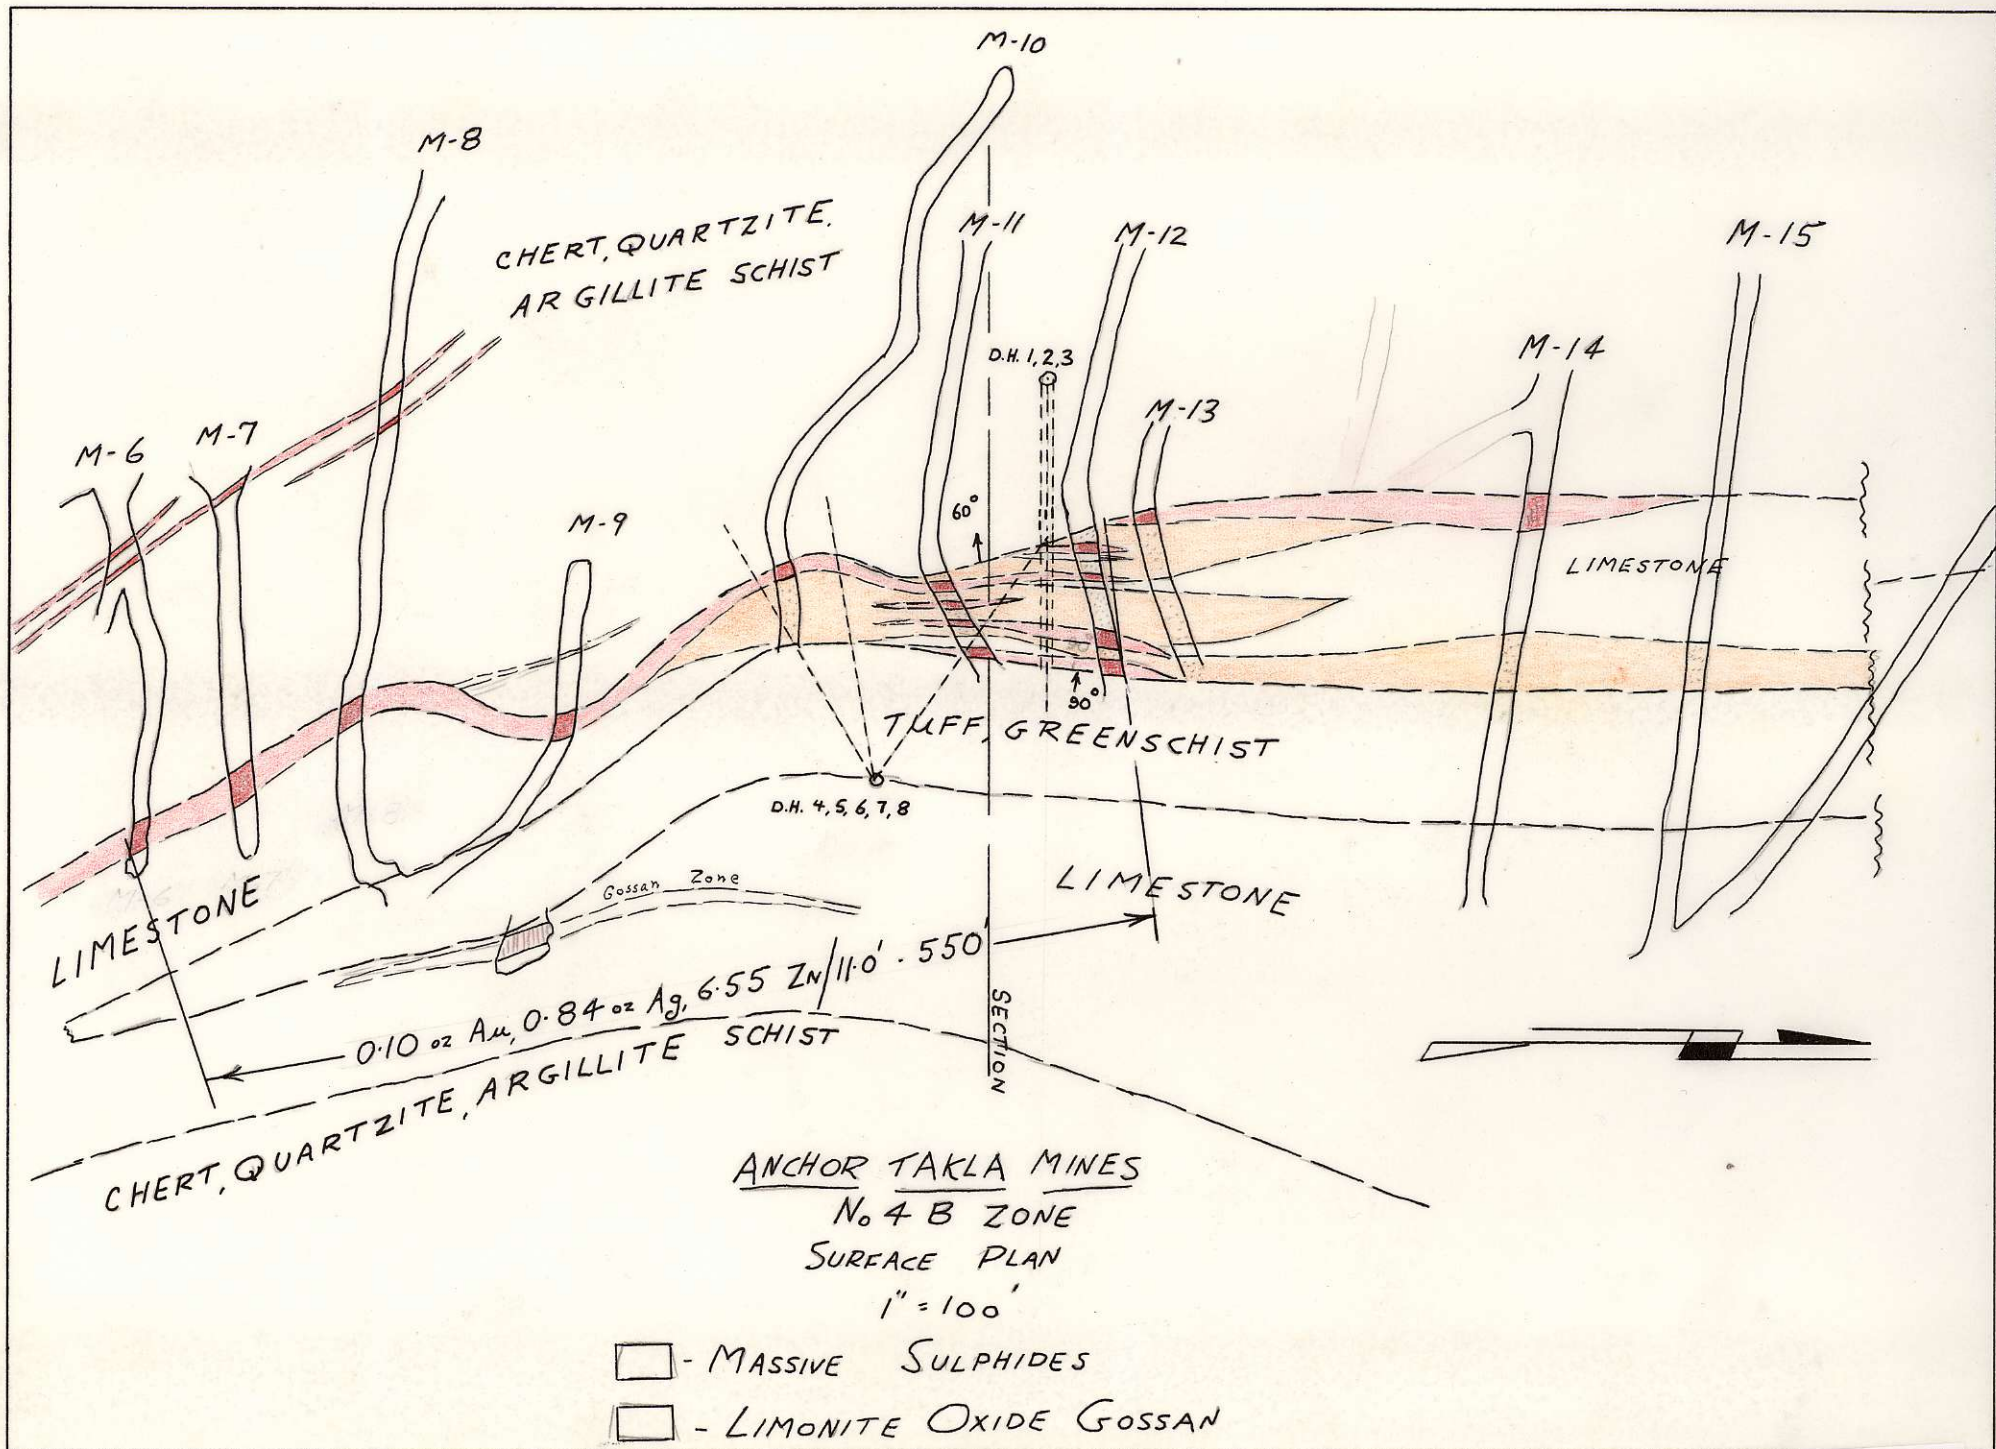 M-10
M-8
CHERT, QUARTZITE.
ARGILLITE SCHIST
M-11
M-12
M-15
D.H. 1,2,3
M-14
M-13
M-6
M-7
M-9
60°
LIMESTONE
90°
TUFF, GREENSCHIST
D.H. 4,5,6,7,8
LIMESTONE
Gossan Zone
LIMESTONE
0.10 oz Au, 0.84 oz Ag, 6.55 ZN/11.0' - 550'
SECTION
CHERT, QUARTZITE, ARGILLITE SCHIST
ANCHOR TAKLA MINES
No 4 B ZONE
SURFACE PLAN
1" = 100'
- MASSIVE SULPHIDES
- LIMONITE OXIDE GOSSAN